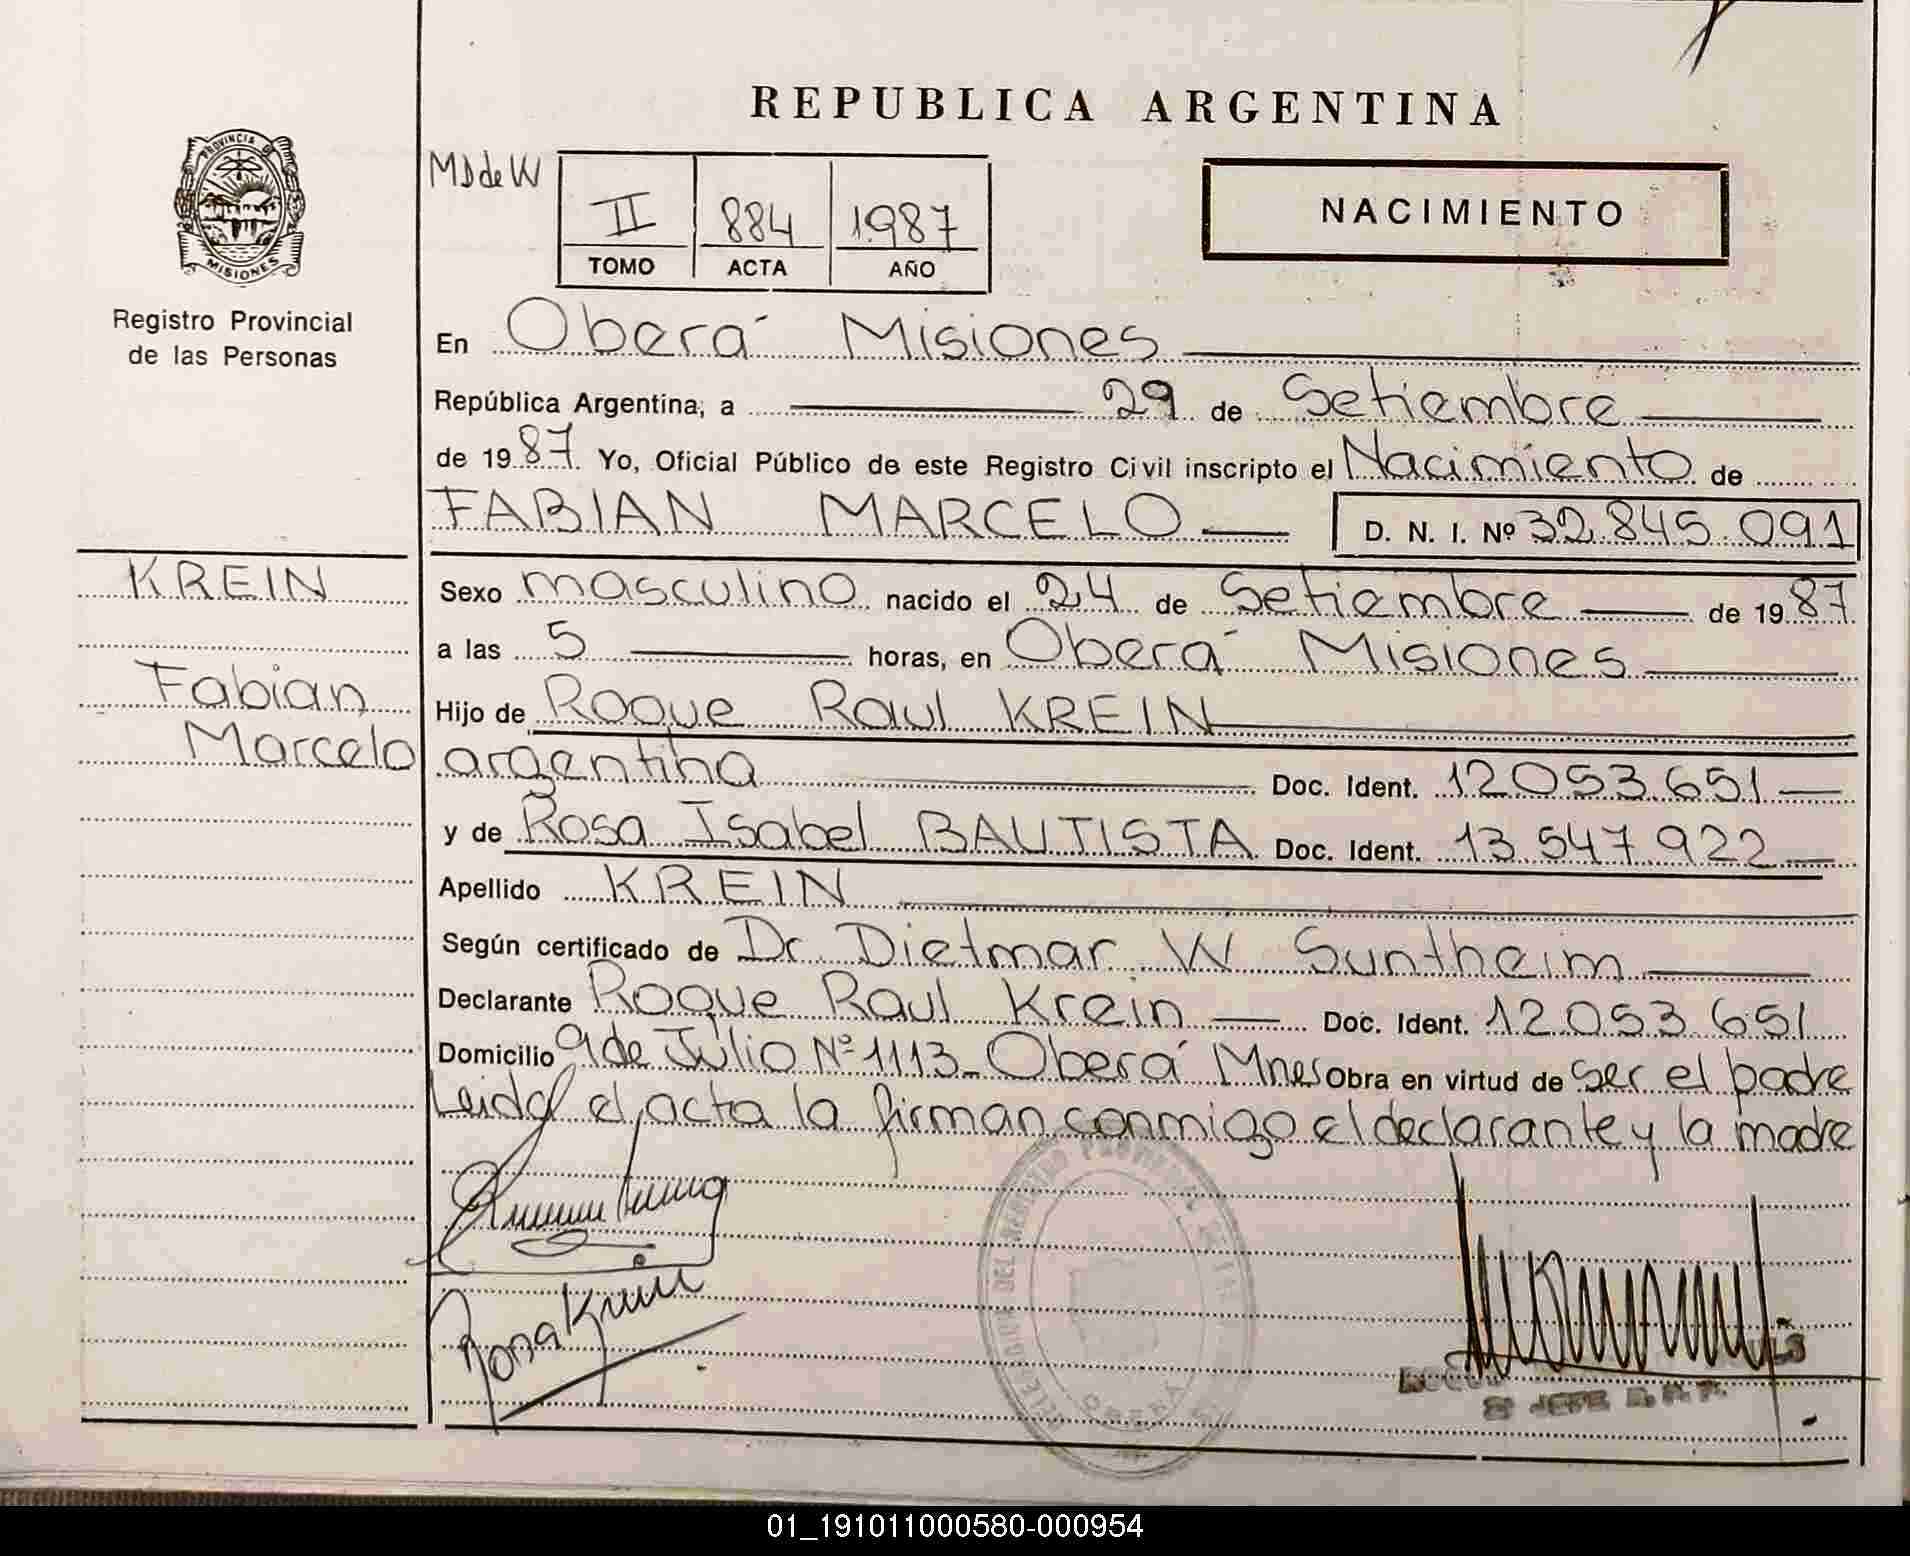 REPUBLICA ARGENTINA
PROVINCIA D
MISIONES
Registro Provincial
de las Personas
MDdeW
II 884 1987
TOMO ACTA AÑO
NACIMIENTO
En Oberá Misiones
República Argentina, a 29 de Setiembre
de 1987. Yo, Oficial Público de este Registro Civil inscripto el Nacimiento de
FABIAN MARCELO D. N. I. Nº 32.845.091
KREIN
Fabian
Marcelo
Sexo masculino nacido el 24 de Setiembre de 1987
a las 5 horas, en Oberá Misiones
Hijo de Roque Raul KREIN
argentina Doc. Ident. 12053.651
y de Rosa Isabel BAUTISTA Doc. Ident. 13.547.922
Apellido KREIN
Según certificado de Dr. Dietmar W Suntheim
Declarante Roque Raul Krein Doc. Ident. 12.053.651
Domicilio 9 de Julio Nº 1113 - Oberá Mnes Obra en virtud de ser el padre
Leida el acta la firman conmigo el declarante y la madre
Rosa Krein
DEL REGISTRO PROVINCIAL
OBERA
JEFE
01_191011000580-000954